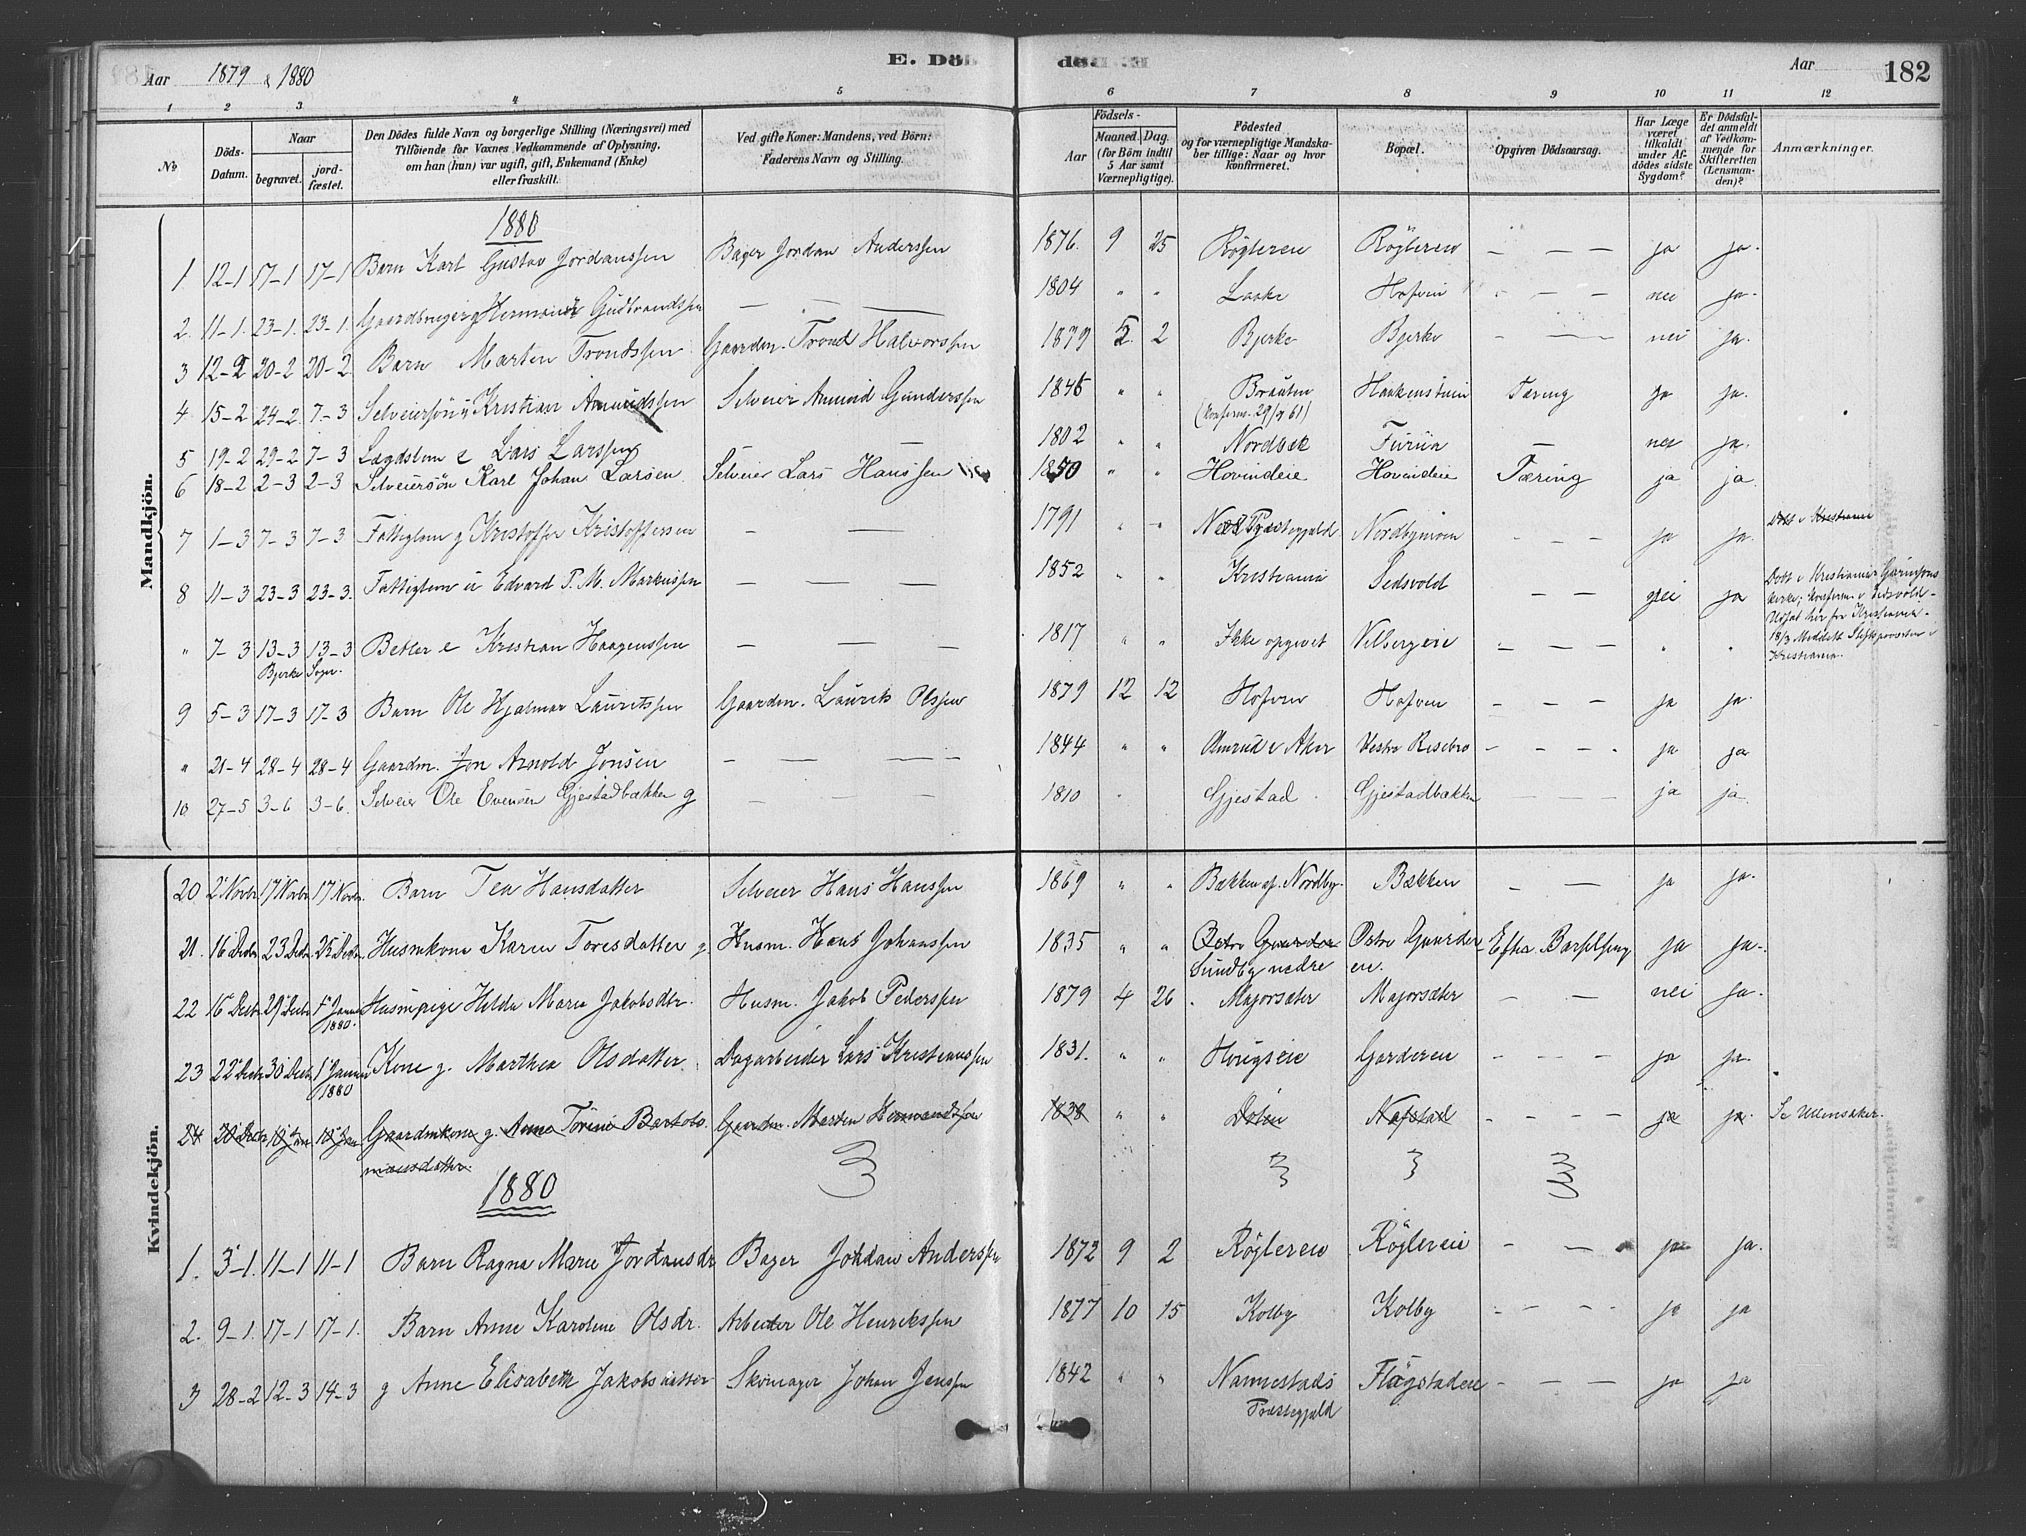 Aar 1879 & 1880
E. Dö
Aar 182
1 2 3 4 5 6 7 8 9 10 11 12
No
Döds-Datum.
Naar
begravet.
jord-fæstet.
Den Dödes fulde Navn og borgerlige Stilling (Næringsvei) med
Tilföiende for Voxnes Vedkommende af Oplysning,
om han (hun) var ugift, gift, Enkemand (Enke)
eller fraskilt.
Ved gifte Koner: Mandens, ved Börn:
Faderens Navn og Stilling.
Födsels-
Aar
Maaned. Dag.
(for Börn indtil
5 Aar samt
Værnepligtige).
Födested
og for værnepligtige Mandska-
ber tillige: Naar og hvor
konfirmeret.
Bopæl.
Opgiven Dödsaarsag.
Har Læge
været
tilkaldt
under Af-
dödes sidste
Sygdom?
Er Dödsfal-
det anmeldt
af Vedkom-
mende for
Skifteretten
(Lensman-
den)?
Anmærkninger.
Mandkjön.
1880
1 12-1 17-1 17-1 Barn Karl Gustav Jordanssen Bager Jordan Anderssen 1876. 9 25 Röglereie Röglereie — — — ja ja.
2. 11-1. 23-1. 23-1. Gaardbruger g Gudbrandssen — — — 1804 " " Laake Hofvin " — — nei ja.
3 12-2 20-2 20-2. Barn Marten Trondssen Gaardm. Trond Halvorssen 1879 5. 2 Bjerke Bjerke - — — nei ja.
4 15-2 24-2. 7-3 Selveiersön u Kristian Amundssen Selveier Amund Gunderssen 1845 " " Braaten Haakenstuen Tæring ja ja.
(Konfirm. 29/9 61)
5 19-2 29-2 7-3 Lægdslem e Lars Larssen — 1802 " " Nordbæk Furua — nei ja.
6 18-2 2-3 2-3 Selveiersön Karl Johan Larsen Selveier Lars Hanssen 1850 " " Hovindeie Hovindeie Tæring ja ja.
7 1-3 7-3 7-3 Fattiglem g Kristoffer Kristoffersen — — 1791 " " Nes Præstegjæld Nordbymoen - - — ja ja. Död i Kristiania
8 11-3 23-3 23-3. Fattiglem u Edvard P. M. Markussen — — — 1852 " " Kristiania Sedsvold — — — nei ja Död i Kristiania Garnisons
Kirke; konfirm. i Eidsvold -
" 7-3 13-3 13-3 Betler e Kristian Haagenssen — — — 1817 " " Ikke opgivet Vilbergeie — — — " " 18/3 Meddelt Stiftsprovsten i
Kristiania.
Bjerke Sogn.
9 5-3 17-3 17-3 Barn Ole Hjalmar Lauritssen Gaardm. Laurits Olssen 1879 12 12 Hofvin Hofvin — — — ja ja.
" 21-4 28-4 28-4 Gaardm. Jon Arnold Jonsen — — — 1844 " " Amrud i Aker Vestre Risebro — — — ja ja
10 27-5 3-6 3-6. Selveier Ole Evensen Gjestadbækken g — — — 1810 " Gjestad Gjestadbækken — — — ja ja.
Kvindekjön.
20 2 Novbr. 17 Novbr. 17 Novbr. Barn Tea Hansdatter Selveier Hans Hanssen 1869 " " Bækken af Nordby. Bækken — — ja ja.
21. 16 Decbr. 23 Decbr. 25 Decbr. Husmkone Karen Toresdatter g. Husm. Hans Johanssen 1835 " " Östre Gaarder Östre Gaarder- Efter Barselseng ja ja.
Sundby nedre eie.
22 16 Decbr. 29 Decbr. 1 Januar Husmpige Hilda Marie Jakobsdtr. Husm. Jakob Pederssen 1879 4 26 Majorsæter Majorsæter — — nei ja.
1880.
23 22 Decbr. 30 Decbr. 1 Januar Kone g. Marthea Olsdatter Dagarbeider Lars Kristianssen 1831. " " Hougseie Garderen — — — ja ja.
1880
24 20 Decbr. 10 Jan 10 Jan Gaardmkone g. Anne Torine Bartolo- Gaardm. Marten 1838 " " Nafstad — — — ja ja. Se Ullensaker.
mæusdatter.
1880
1. 3-1. 11-1 11-1 Barn Ragna Marie Jordansdr Bager Johdan Anderssen 1872 9 2 Röglereie Röglereie — — ja ja.
2. 9-1. 17-1 17-1. Barn Anne Karoline Olsdr. Arbeider Ole Henrikssen 1877 10 15 Kolby Kolby — — — ja ja
3 28-2 12-3 14-3 g Anne Elisabeth Jakobsdatter Skomager Johan Jenssen 1842 " " Nannestads Flögstadeie — — — ja ja
Præstegjæld